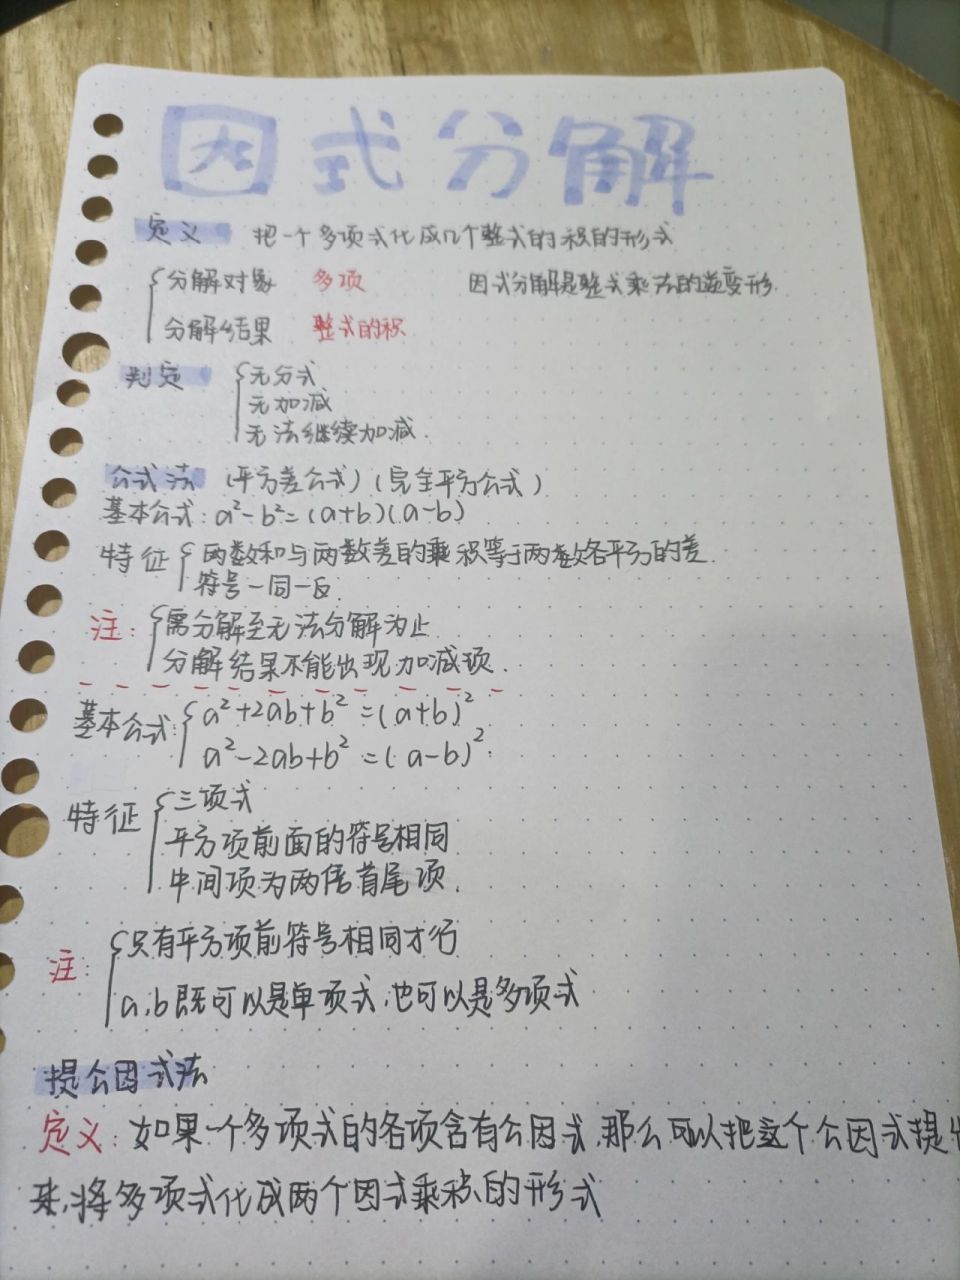 因式分解
定义 把一个多项式化成几个整式的积的形式
分解对象 多项 因式分解是整式乘法的逆变形.
分解结果 整式的积
判定 无分式
无加减
无法继续加减.
公式法 (平方差公式)(完全平方公式)
基本公式: a²-b²=(a+b)(a-b)
特征 两数和与两数差的乘积等于两数各平方的差.
符号一同一反.
注: 需分解至无法分解为止
分解结果不能出现加减项.
基本公式: a²+2ab+b²=(a+b)²
a²-2ab+b²=(a-b)².
特征 三项式
平方项前面的符号相同
中间项为两倍首尾项.
注: 只有平方项前符号相同才行
a,b既可以是单项式,也可以是多项式
提公因式法
定义: 如果一个多项式的各项含有公因式,那么可以把这个公因式提出
来,将多项式化成两个因式乘积的形式